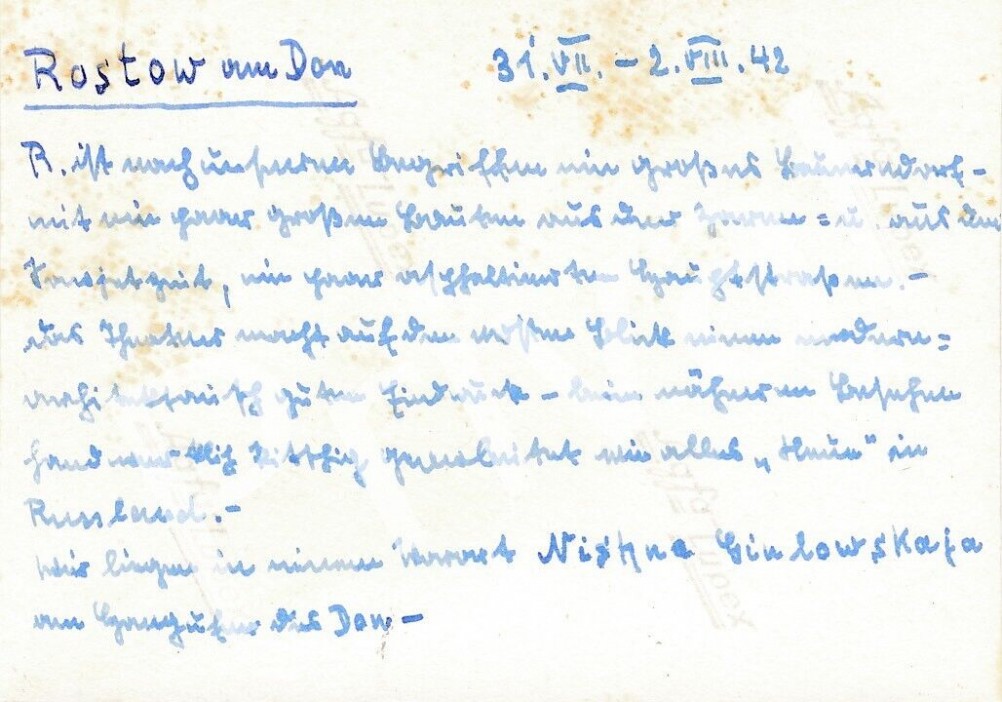 Rostow am Don 31. VII. – 2. VIII. 42
R. ist nach unseren Begriffen ein großes Bauerndorf –
mit ein paar großen Bauten aus der Zaren = u. aus der
Sowjetzeit, ein paar asphaltierten Hauptstraßen. –
das Theater macht auf den ersten Blick einen modern =
architektonisch guten Eindruck – beim näheren Besehen
handwerklich gearbeitet wie alles „Neue“ in
Russland. –
Wir liegen in einem Vorort Nishne Ginlowskaja
am Hangufer des Don –